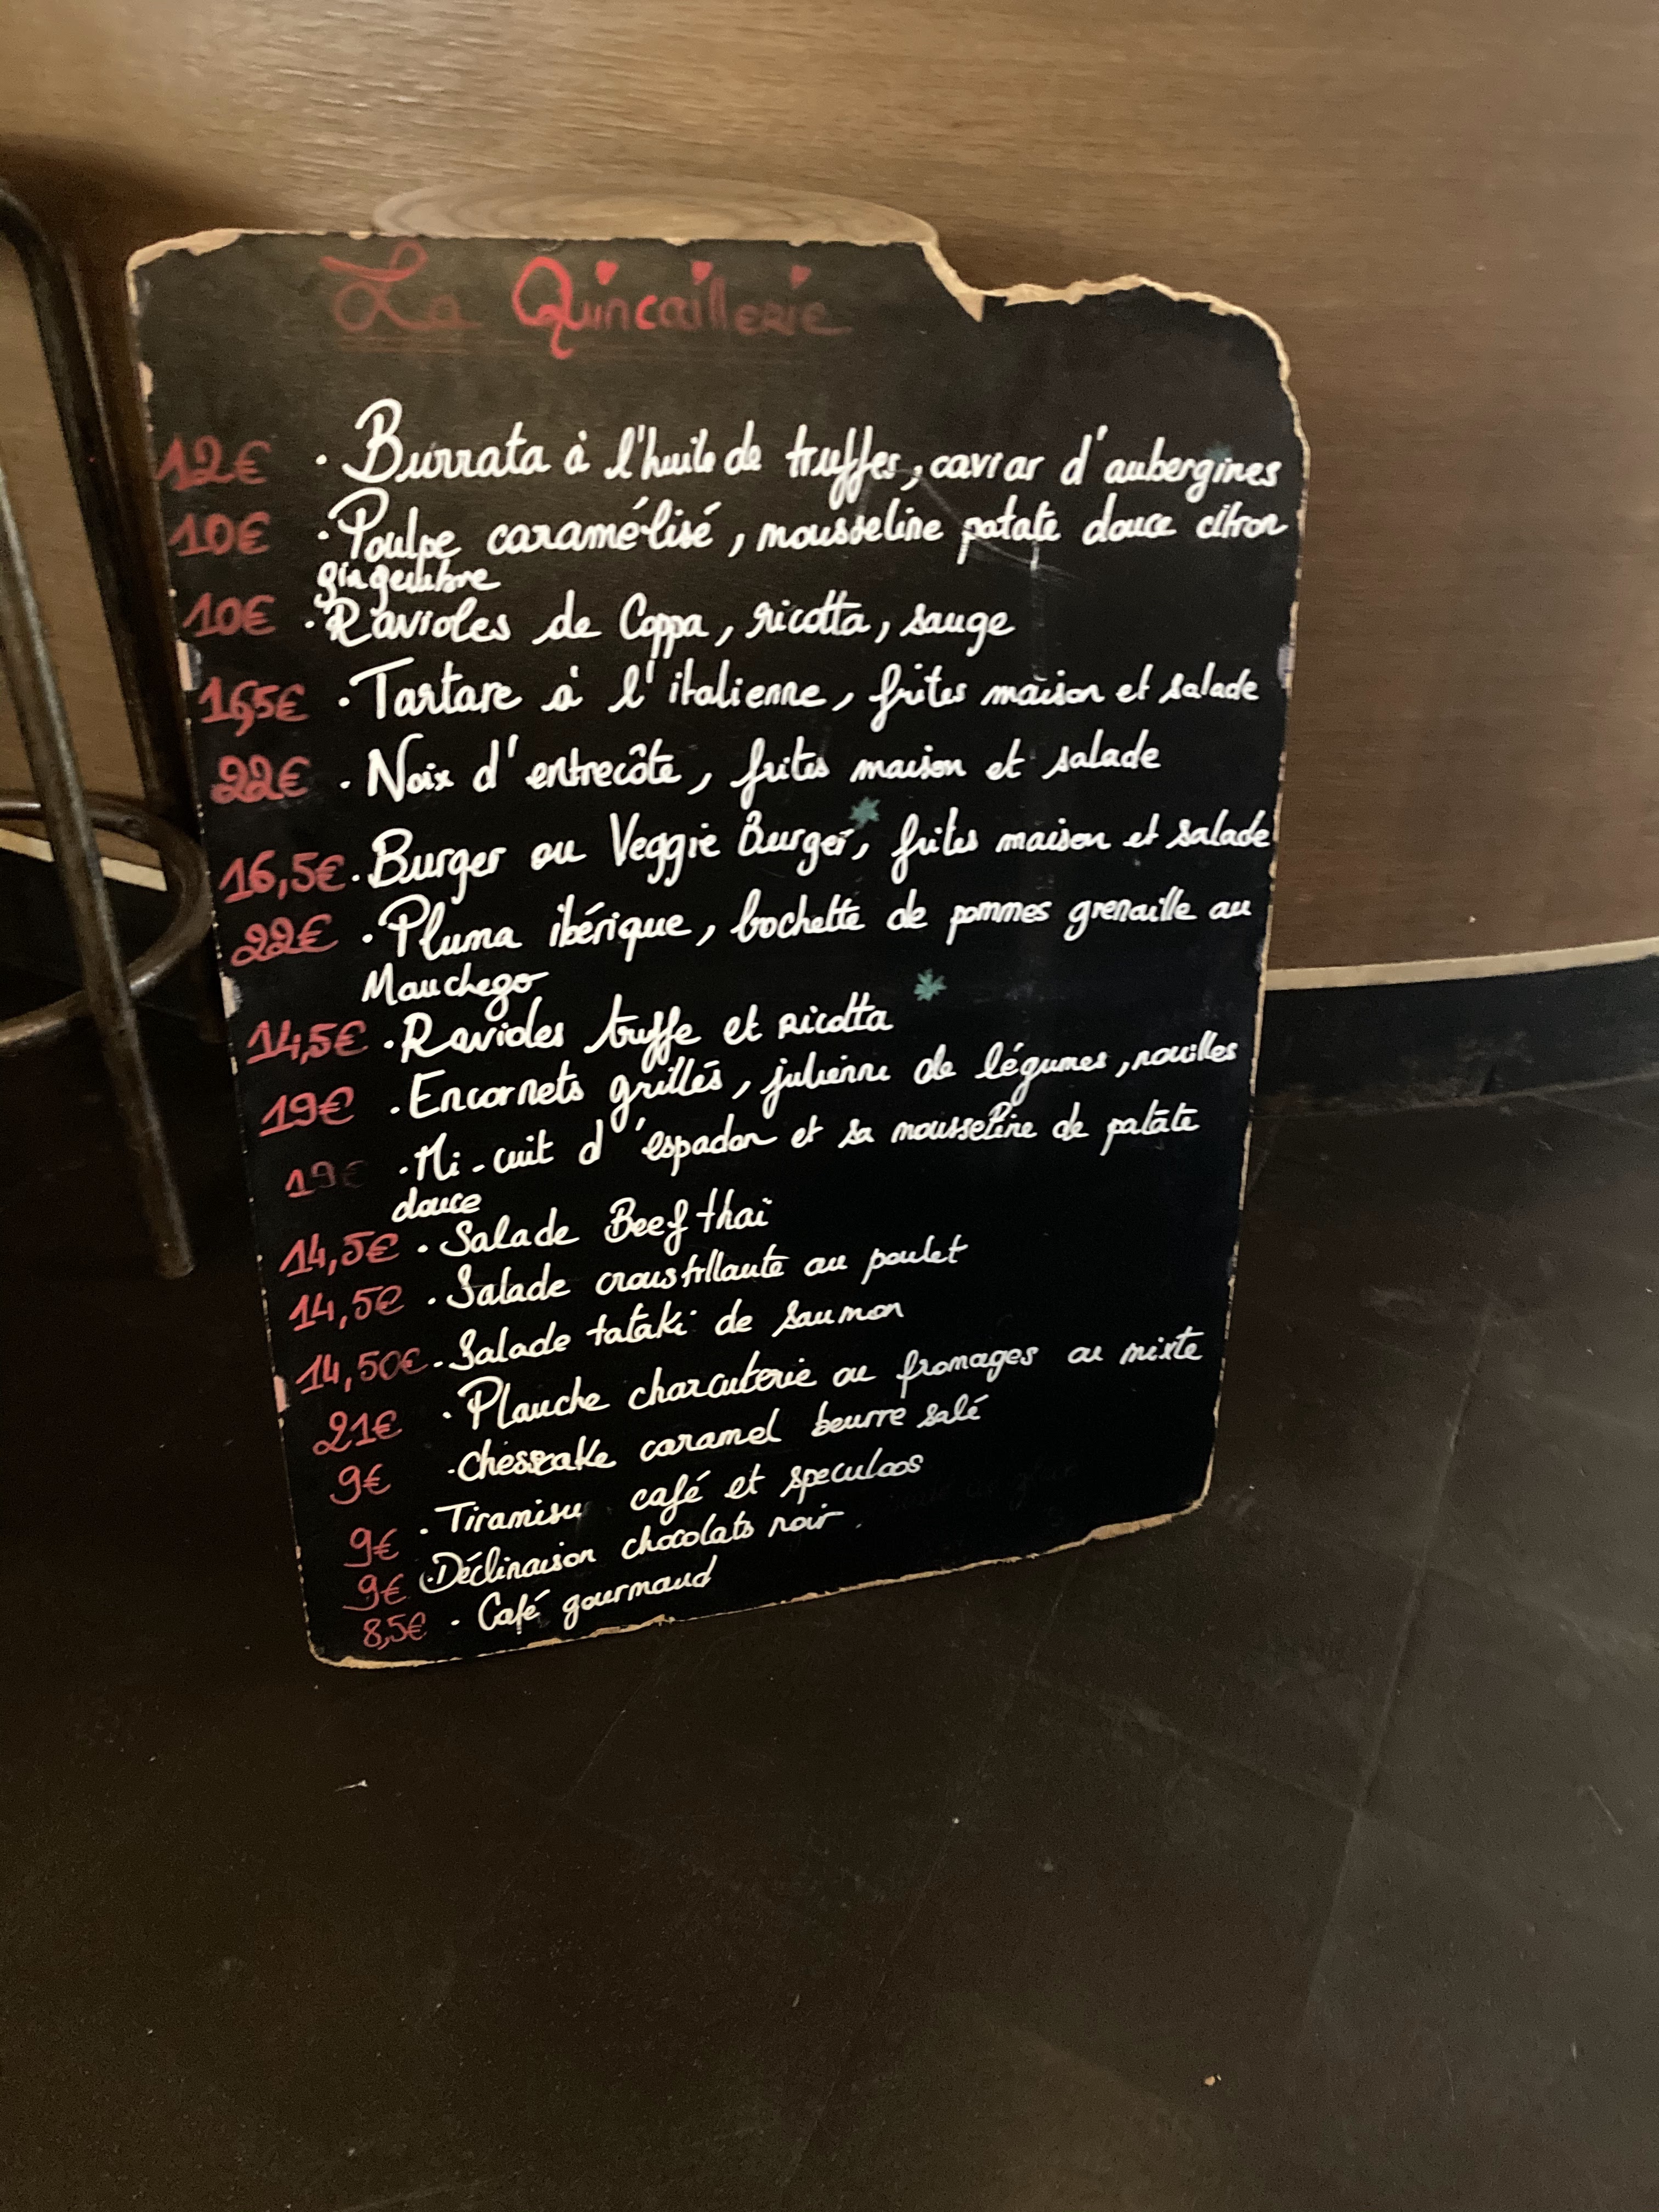 La Quincaillerie
12€ · Burrata à l'huile de truffes, caviar d'aubergines
10€ · Poulpe caramélisé, mousseline patate douce citron
gingembre
10€ · Ravioles de Coppa, ricotta, sauge
16,5€ · Tartare à l'italienne, frites maison et salade
22€ · Noix d'entrecôte, frites maison et salade
16,5€ · Burger ou Veggie Burger, frites maison et salade
22€ · Pluma ibérique, brochette de pommes grenaille au
Manchego
14,5€ · Ravioles truffe et ricotta
19€ · Encornets grillés, julienne de légumes, nouilles
19€ · Mi-cuit d'espadon et sa mousseline de patate
douce
14,5€ · Salade Beef thaï
14,5€ · Salade croustillante au poulet
14,50€ · Salade tataki de saumon
21€ · Planche charcuterie ou fromages ou mixte
9€ · Chesscake caramel beurre salé
9€ · Tiramisu café et speculoos
9€ · Déclinaison chocolats noir
8,5€ · Café gourmand